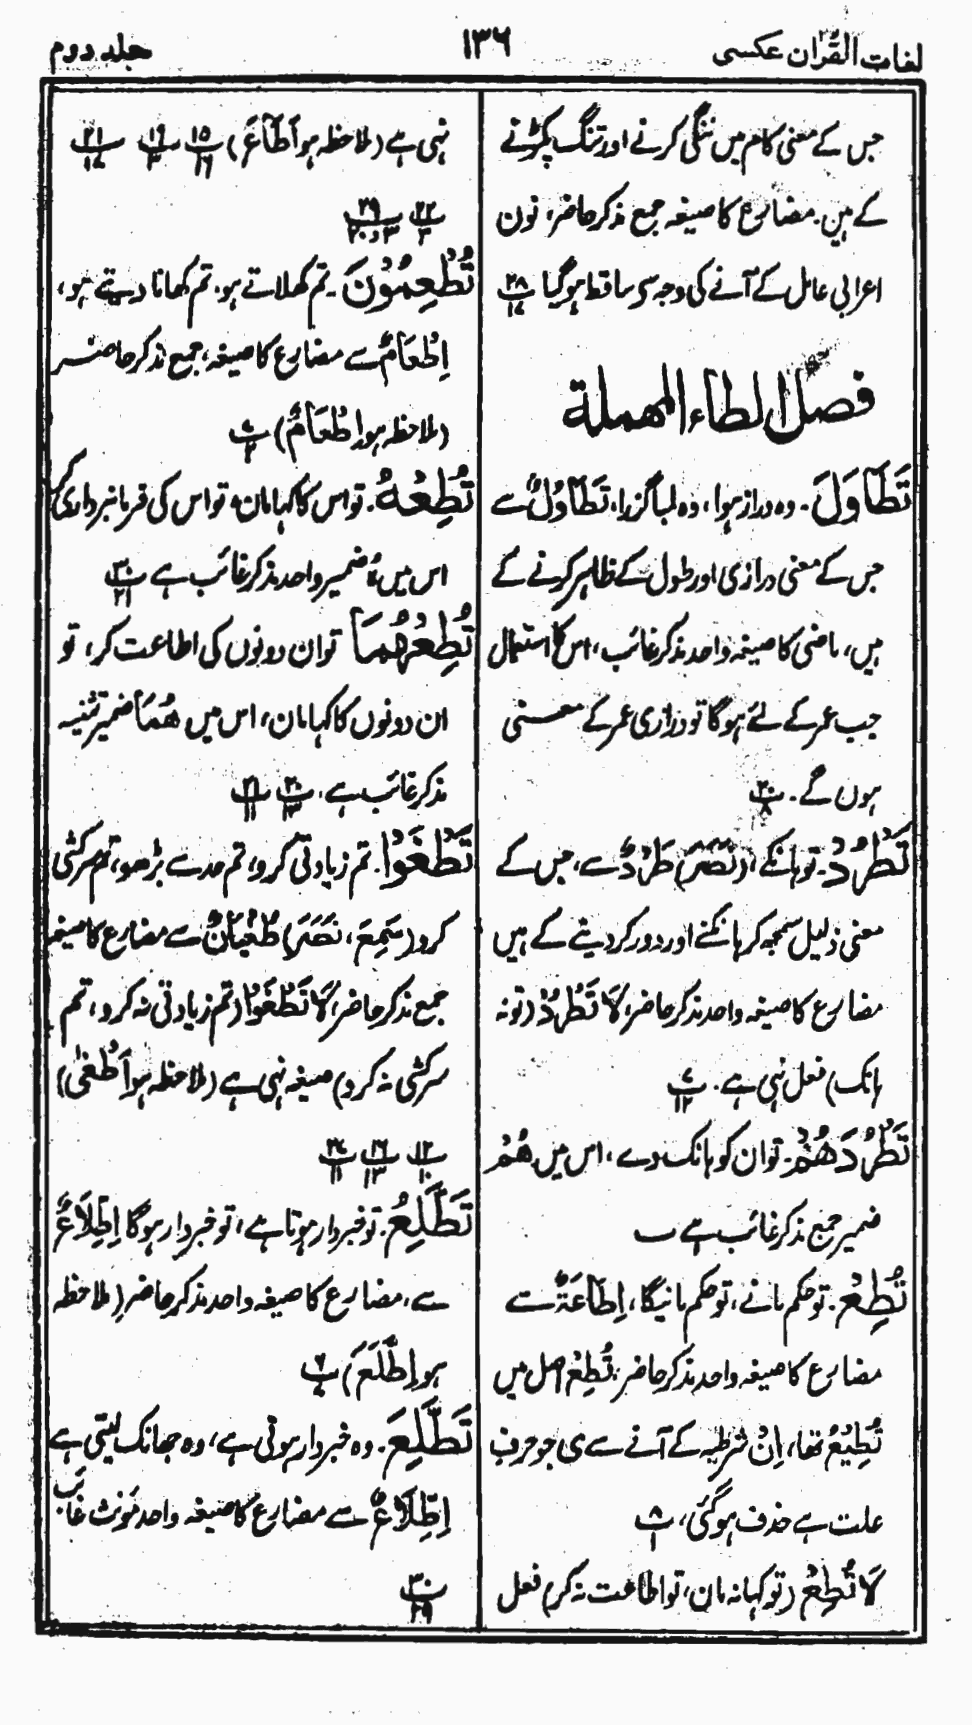 لغات القرآن عکسی
۱۳۶
جلد دوم
جس کے معنی کام میں تنگی کرنے اور تنگ پکڑنے
کے ہیں۔ مضارع کا صیغہ جمع مذکر حاضر، نون
اعرابی عامل کے آنے کی وجہ سے ساقط ہوگیا ۲۸/۱۷
فصل الطاء المهملة
تَطَاوَلَ۔ وہ دراز ہوا، وہ لمبا گزرا، تَطَاوُلٌ سے
جس کے معنی درازی اور طول کے ظاہر کرنے کے
ہیں، ماضی کا صیغہ واحد مذکر غائب، اس کا استعمال
جب عمر کے لئے ہوگا تو درازی عمر کے معنی
ہوں گے۔ ۲۰/۸
تَطْرُدْ۔ تو ہانکے، (نَصَرَ) طَرْدٌ سے، جس کے
معنی ذلیل سمجھ کر ہانکنے اور دور کر دینے کے ہیں
مضارع کا صیغہ واحد مذکر حاضر، لَا تَطْرُدْ (تو نہ
ہانک) فعل نہی ہے۔ ۷/۱۲
تَطْرُدَهُمْ۔ تو ان کو ہانک دے، اس میں هُمْ
ضمیر جمع مذکر غائب ہے
تُطِعْ۔ تو حکم مانے، تو حکم مانیگا، اِطَاعَةٌ سے
مضارع کا صیغہ واحد مذکر حاضر، تُطِعْ اصل میں
تُطِيْعُ تھا، اِنْ شرطیہ کے آنے سے ی جو حرف
علت ہے حذف ہوگئی، ۸/۱
لَا تُطِعْ (تو کہا نہ مان، تو اطاعت نہ کر) فعل
نہی ہے (ملاحظہ ہو اَطَاعَ) ۱۵/۱۶ ۱۹/۳ ۲۱/۱۷
۲۲/۳ ۲۹/۳و۲۰
تُطْعِمُوْنَ۔ تم کھلاتے ہو، تم کھانا دیتے ہو،
اِطْعَامٌ سے مضارع کا صیغہ، جمع مذکر حاضر
(ملاحظہ ہو اِطْعَامٌ) ۷/۲
تُطِعْهُ۔ تو اس کا کہا مان، تو اس کی فرمانبرداری کر
اس میں ہٗ ضمیر واحد مذکر غائب ہے ۳۰/۲۱
تُطِعْهُمَا تو ان دونوں کی اطاعت کر، تو
ان دونوں کا کہا مان، اس میں هُمَا ضمیر تثنیہ
مذکر غائب ہے، ۲۰/۱۳ ۲۱/۱۱
تَطْغَوْا۔ تم زیادتی کرو، تم حد سے بڑھو، تم سرکشی
کرو (سَمِعَ، نَصَرَ) طُغْيَانٌ سے مضارع کا صیغہ
جمع مذکر حاضر، لَا تَطْغَوْا (تم زیادتی نہ کرو، تم
سرکشی نہ کرو) صیغہ نہی ہے (ملاحظہ ہو اَطْغٰی)
۱۲/۱۰ ۱۶/۱۳ ۲۷/۱۱
تَطَّلِعُ۔ تو خبردار ہوتا ہے، تو خبردار ہوگا اِطِّلَاعٌ
سے، مضارع کا صیغہ واحد مذکر حاضر (ملاحظہ
ہو اِطَّلَعَ) ۶/۷
تَطَّلِعَ۔ وہ خبردار ہوتی ہے، وہ جھانک لیتی ہے
اِطِّلَاعٌ سے مضارع کا صیغہ واحد مؤنث غائب
۳۰/۲۹